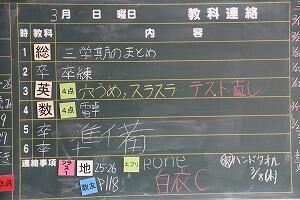 3月 日 曜日 教科連絡
時 教科 内容
1 総 三学期のまとめ
2 卒 卒練
3 英 4点 穴うめ,スラスラ テスト直し
4 数 4点 電卓
5 卒 準備
6 卒
連絡事項 地 25・26 エプリ
数友 P118 白衣C ハンドタオル
3/8(木)
3点